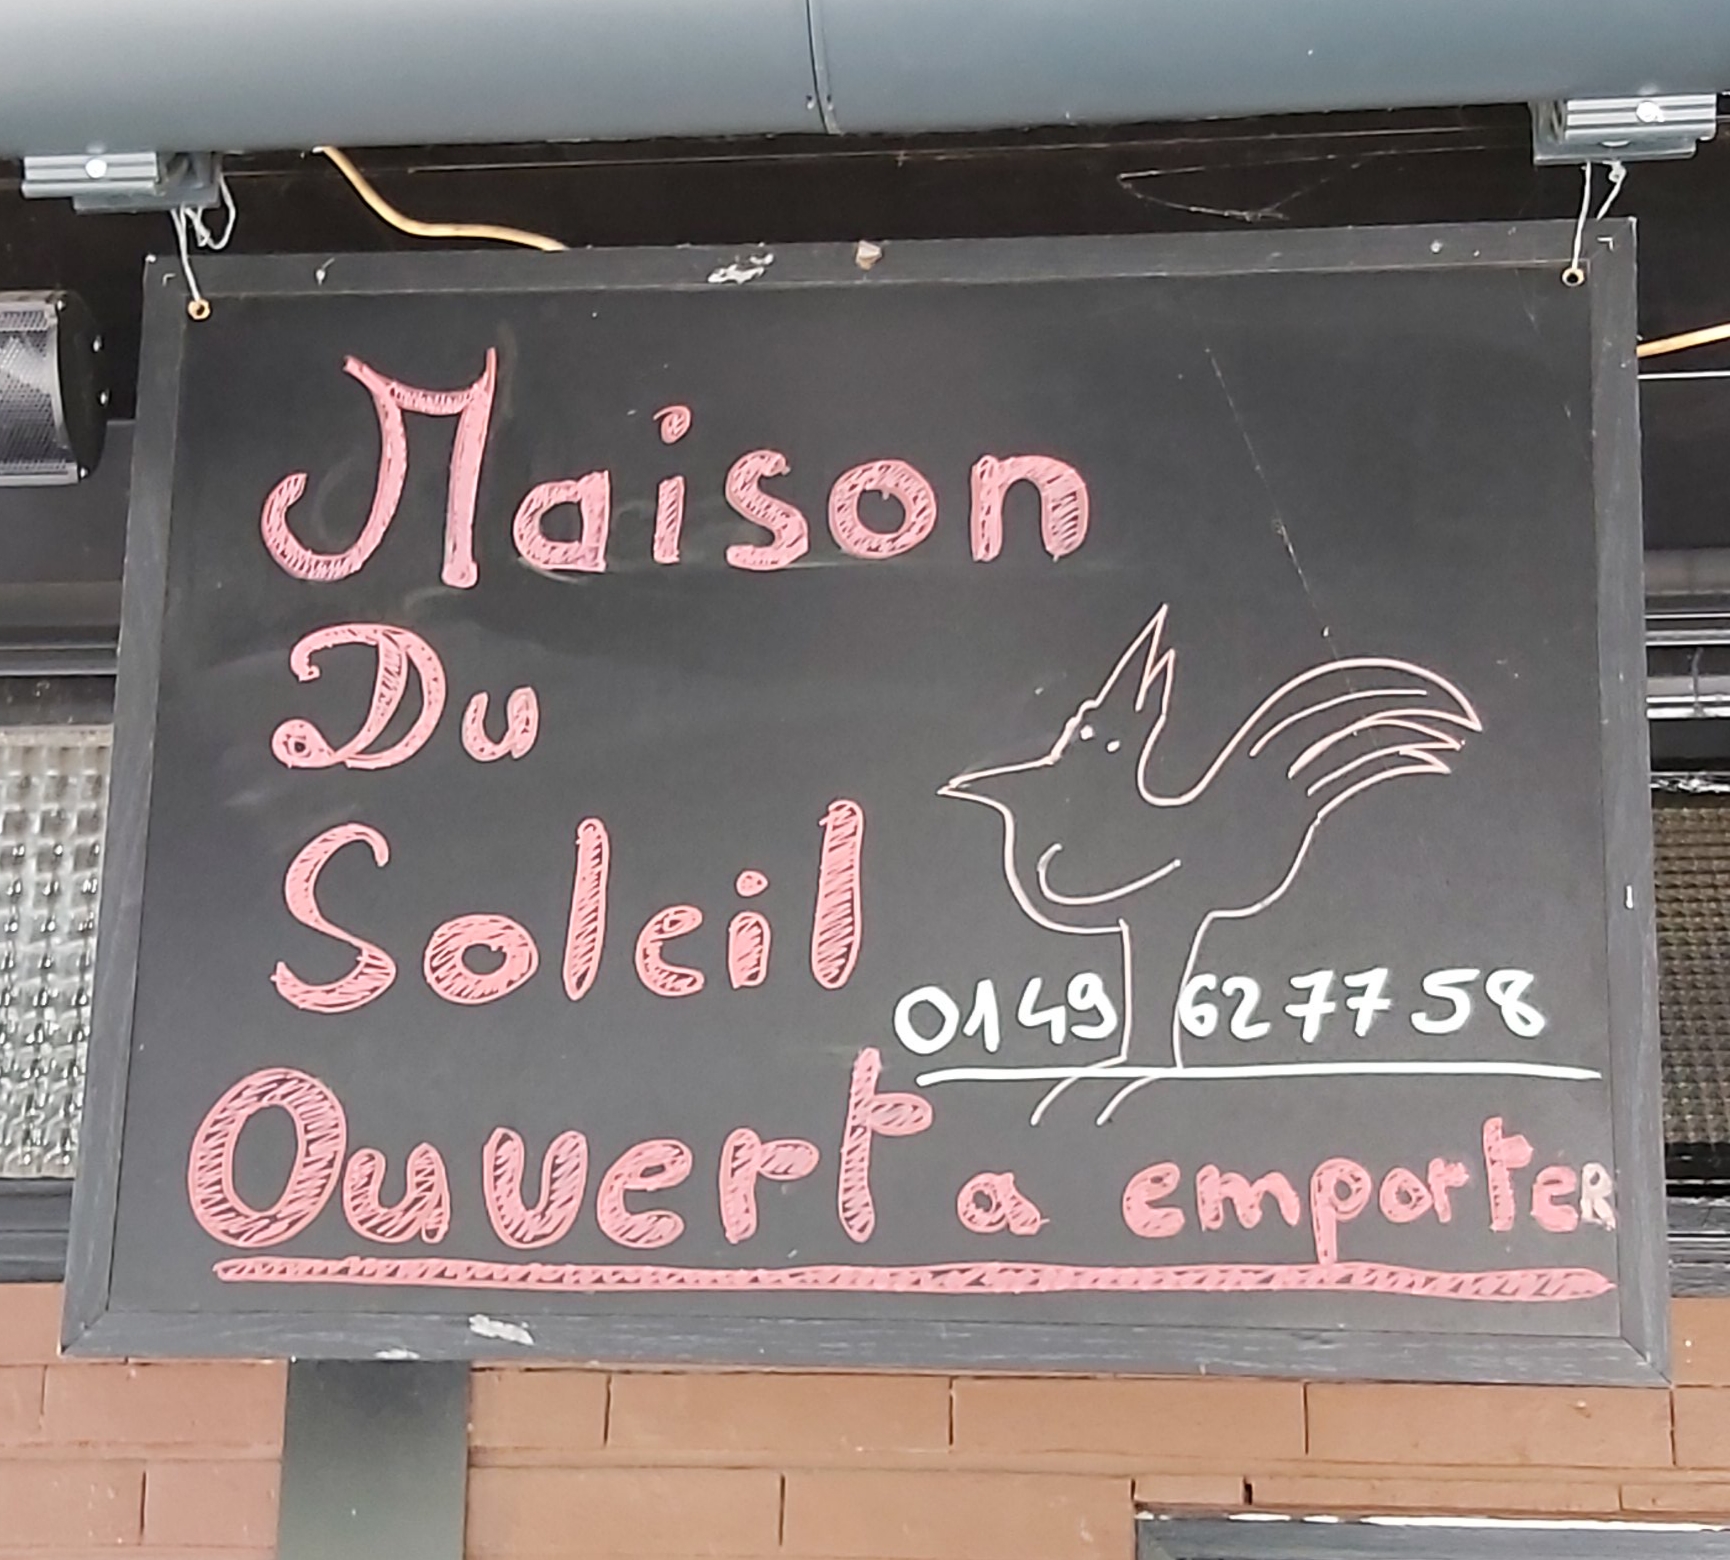 Maison
Du
Soleil
0149 627758
Ouvert a emporteR